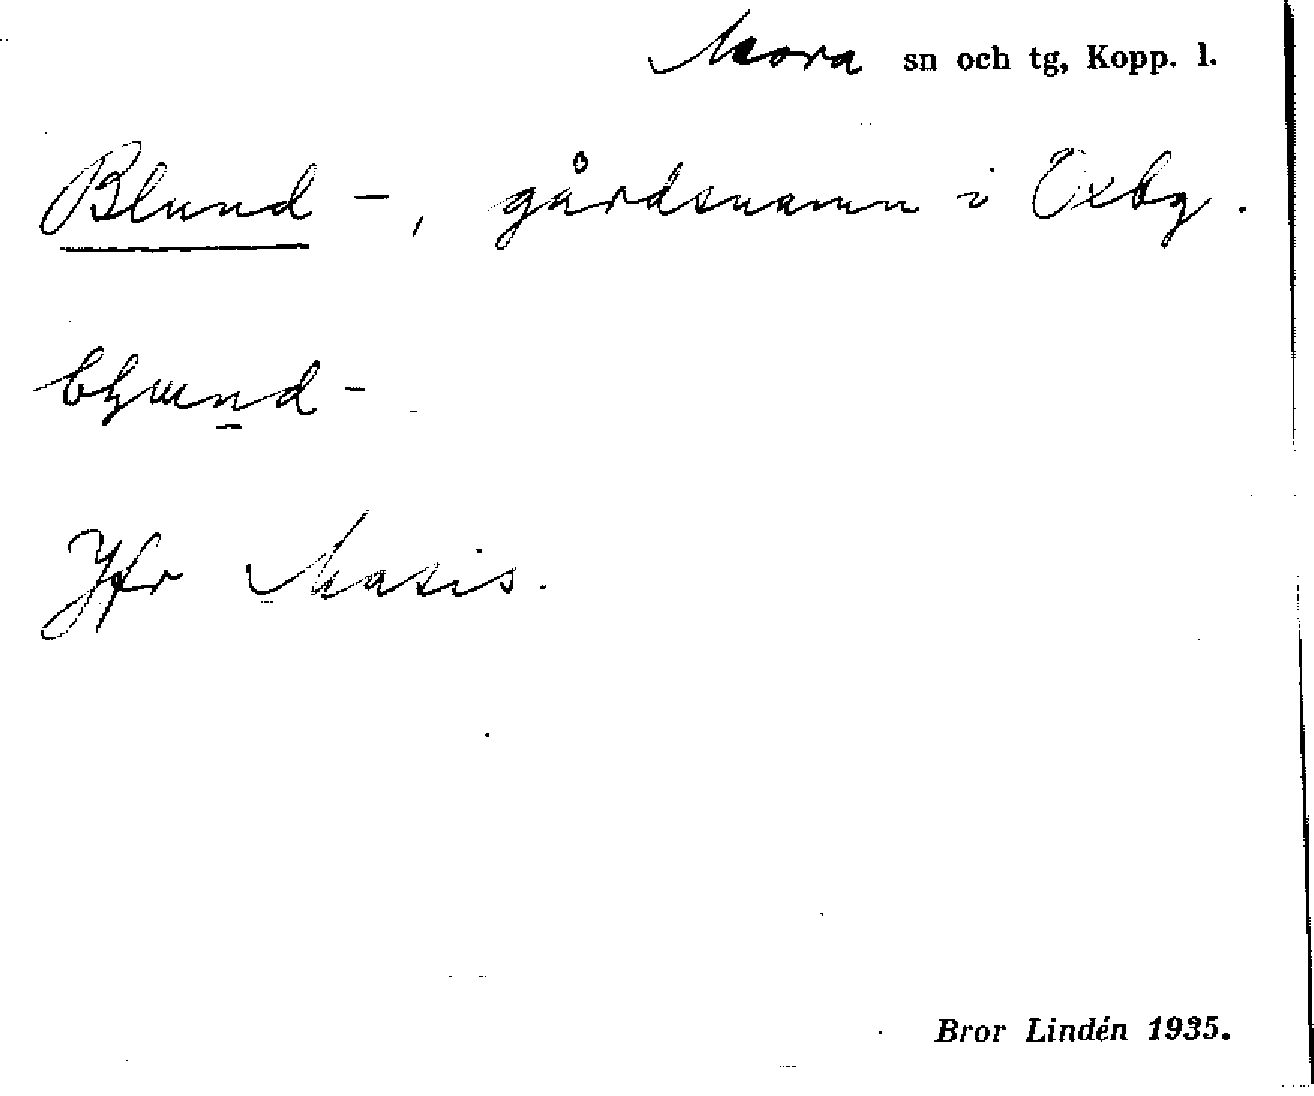 Mora sn och tg, Kopp. l.
Blund -, gårdsnamn i Oxbg.
Jfr Matis.
Bror Lindén 1935.